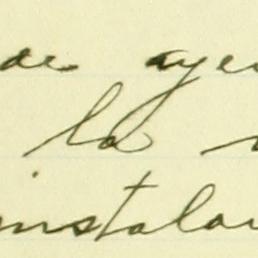 de aye
la
instala